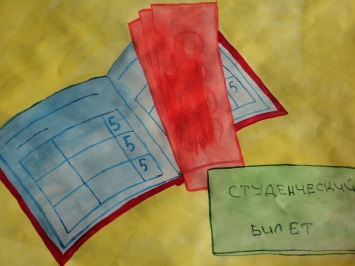 5
5
5
5
СТУДЕНЧЕСКИЙ
БИЛЕТ